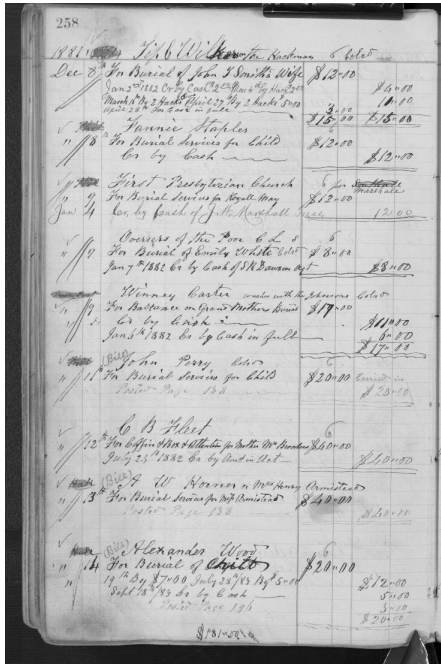 258
1881 Tip C Wilkerson the Hackman Colrd
Dec 8th For Burial of John T Smiths Wife $12"00
Jan 2nd 1882 Cr by Cash March by Hack $4"00
March 1st By 2 Hacks April 27 By 2 Hacks 5"00 10"00
April 28th For Cash in full 3"00
$15"00 $15"00
Fannie Staples 6
" 8th For Burial Services for Child $12"00
Cr by Cash $12"00
First Presbyterian Church 6 for Marshall
" 9 For Burial Services for Royall May $12"00
Jan 4 Cr. by Cash of J. M Marshall 12"00
Overseers of the Poor C L 6
" 9 For Burial of Emily White Colrd $8"00
Jan 7th 1882 Cr by Cash of S K Dawson Agt $8"00
Winney Carter washes with the Johnsons Colrd
" 9 For Ballance on Grand Mothers Burial $17"00
Cr by Cash $11"00
Jan 6th 1882 Cr by Cash in full 6"00
$17"00
(Bill) John Perry Colrd 6
" 11th For Burial Services for Child $20"00 Carried in
Posted Page 138 $20"00
C B Fleet 6
" 12th For Coffin & Box & Attention for Mother Mrs $40"00
July 25th 1882 Cr by Amt in Act $40"00
(Bill) A W Hornor or Mrs Henry Armistead
" 13th For Burial Services for Mr Armistead $40"00
Posted Page 138 $40"00
(Bill) Alexander Wood 6
" 14 For Burial of Child $20"00
19th By $7"00 July 28th/83 By $5"00 $12"00
Sept 18th/83 Cr by Cash 5"00
Posted Page 196 3"00
$20"00